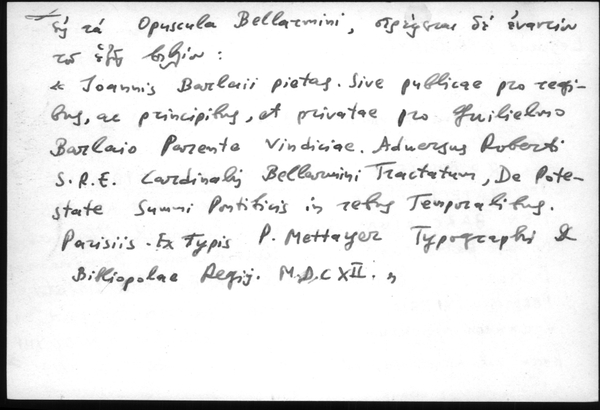 εἰς τά Opuscula Bellarmini, στρέφεται δέ ἐναντίον
τοῦ ἑξῆς βιβλίου :
« Joannis Barlaii pietas. Sive publicae pro regi-
bus, ac principibus, et privatae pro Guilielmo
Barlaio Parente Vindiciae. Adversus Roberti
S.R.E. Cardinalis Bellarmini Tractatum, De Pote-
state Summi Pontificis in rebus Temporalibus.
Parisiis. Ex Typis P. Mettayer Typographi &
Bibliopolae Regij. M.D.C XII. »